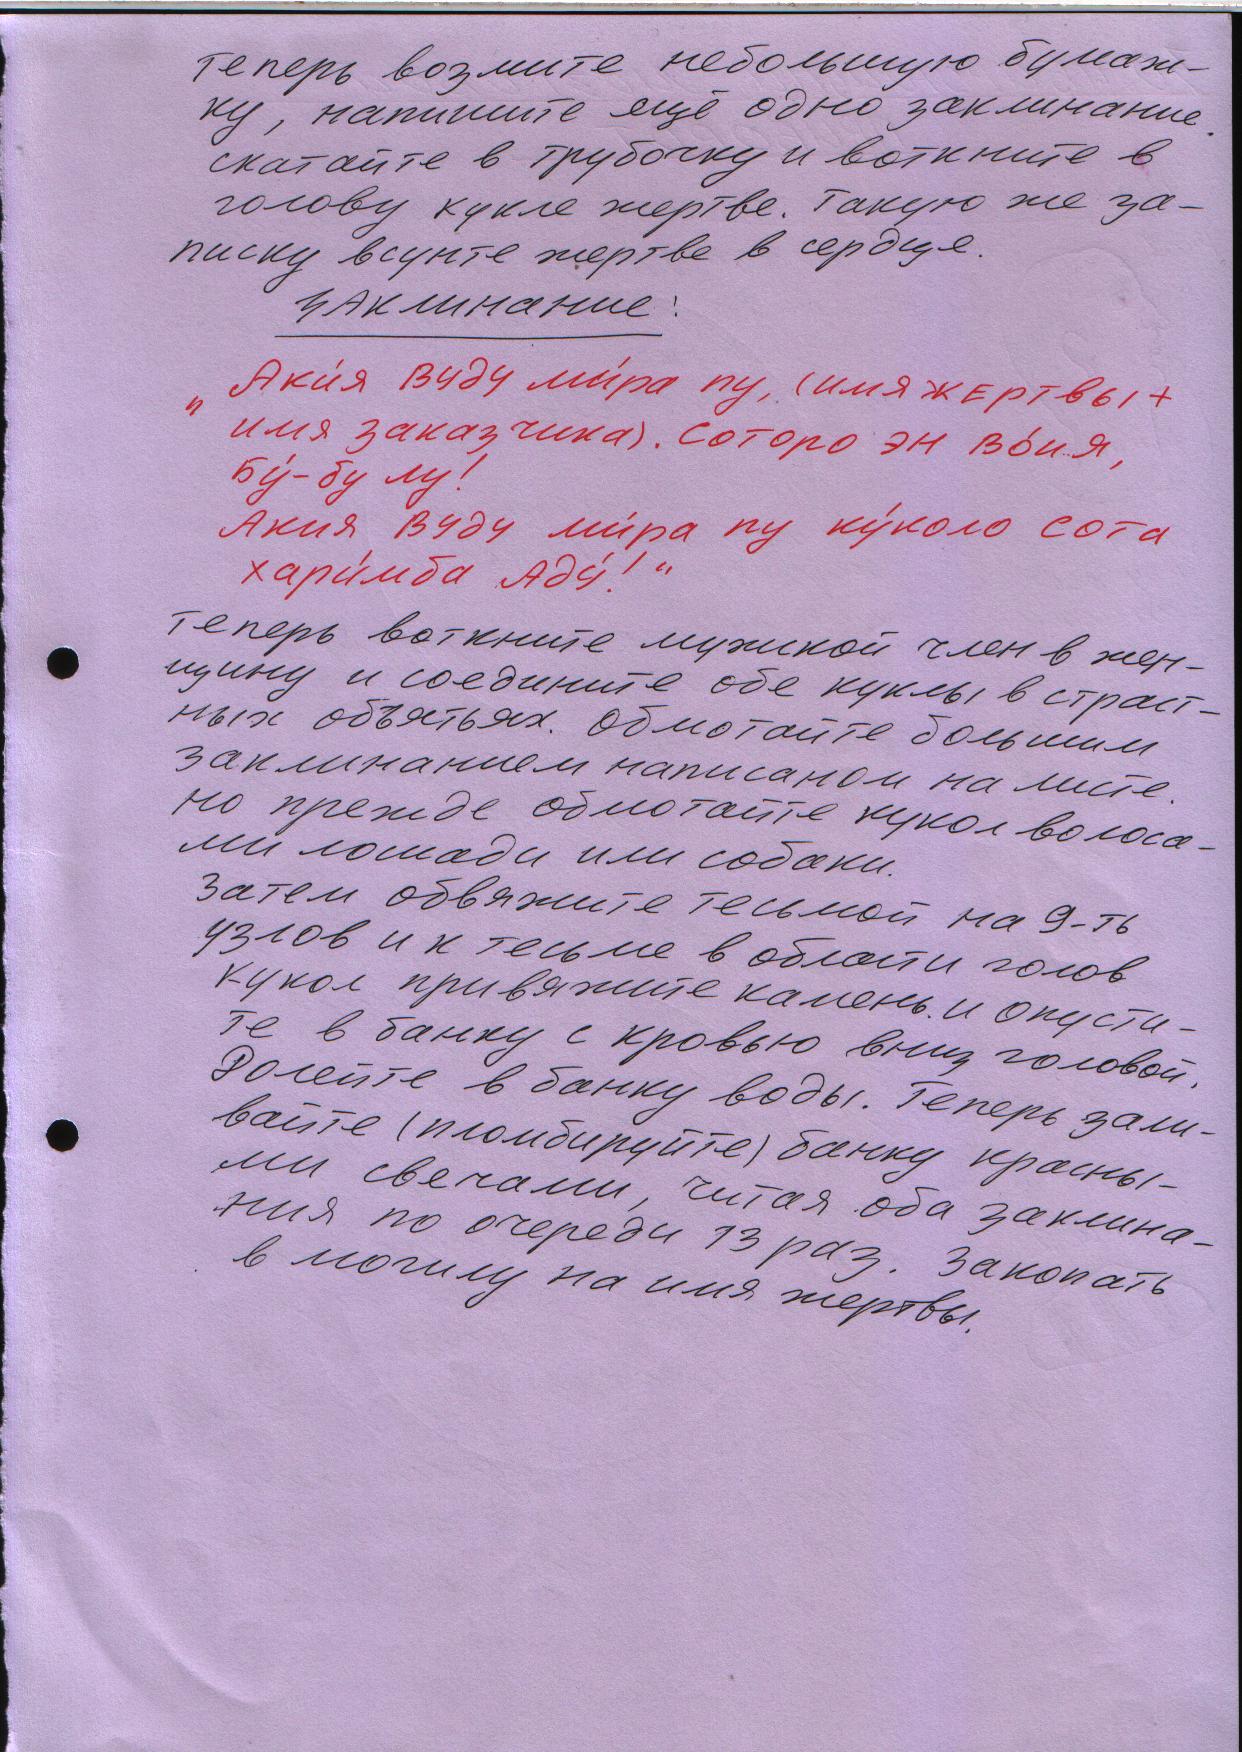 Теперь возмите небольшую бумаж-
ку, напишите ещё одно заклинание.
скатайте в трубочку и воткните в
голову кукле жертве. Такую же за-
писку всунте жертве в сердце.
Заклинание:
„Аки́я Вуду ми́ра пу, (имя жертвы +
имя заказчика). Соторо эн во́ия,
Бу́-бу лу!
Акия Вуду ми́ра пу ку́коло сота
хари́мба Аду́!“
Теперь воткните мужской член в жен-
щину и соедините обе куклы в страст-
ных объятьях. Обмотайте большим
заклинанием написаном на листе.
но прежде обмотайте кукол волоса-
ми лошади или собаки.
Затем обвяжите тесьмой на 9-ть
узлов и к тесьме в области голов
кукол привяжите камень. и опусти-
те в банку с кровью вниз головой.
Долейте в банку воды. Теперь зали-
вайте (пломбируйте) банку красны-
ми свечами, читая оба заклина-
ния по очереди 13 раз. Закопать
в могилу на имя жертвы.